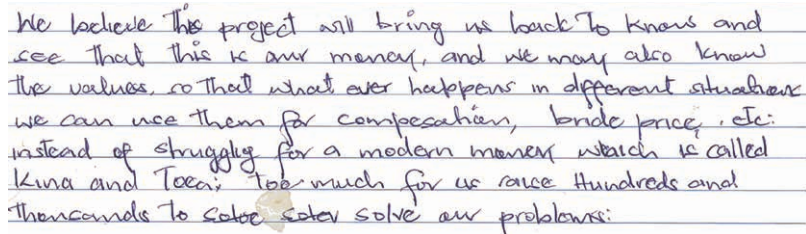 We believe this project will bring us back To know and
see that this is our money, and we may also know
the values, so that what ever happens in different situations
we can use them for compesation, bride price, etc:
instead of struggling for a modern money which is called
Kina and Toea; too much for us raise Hundreds and
thousands To solve our problems: